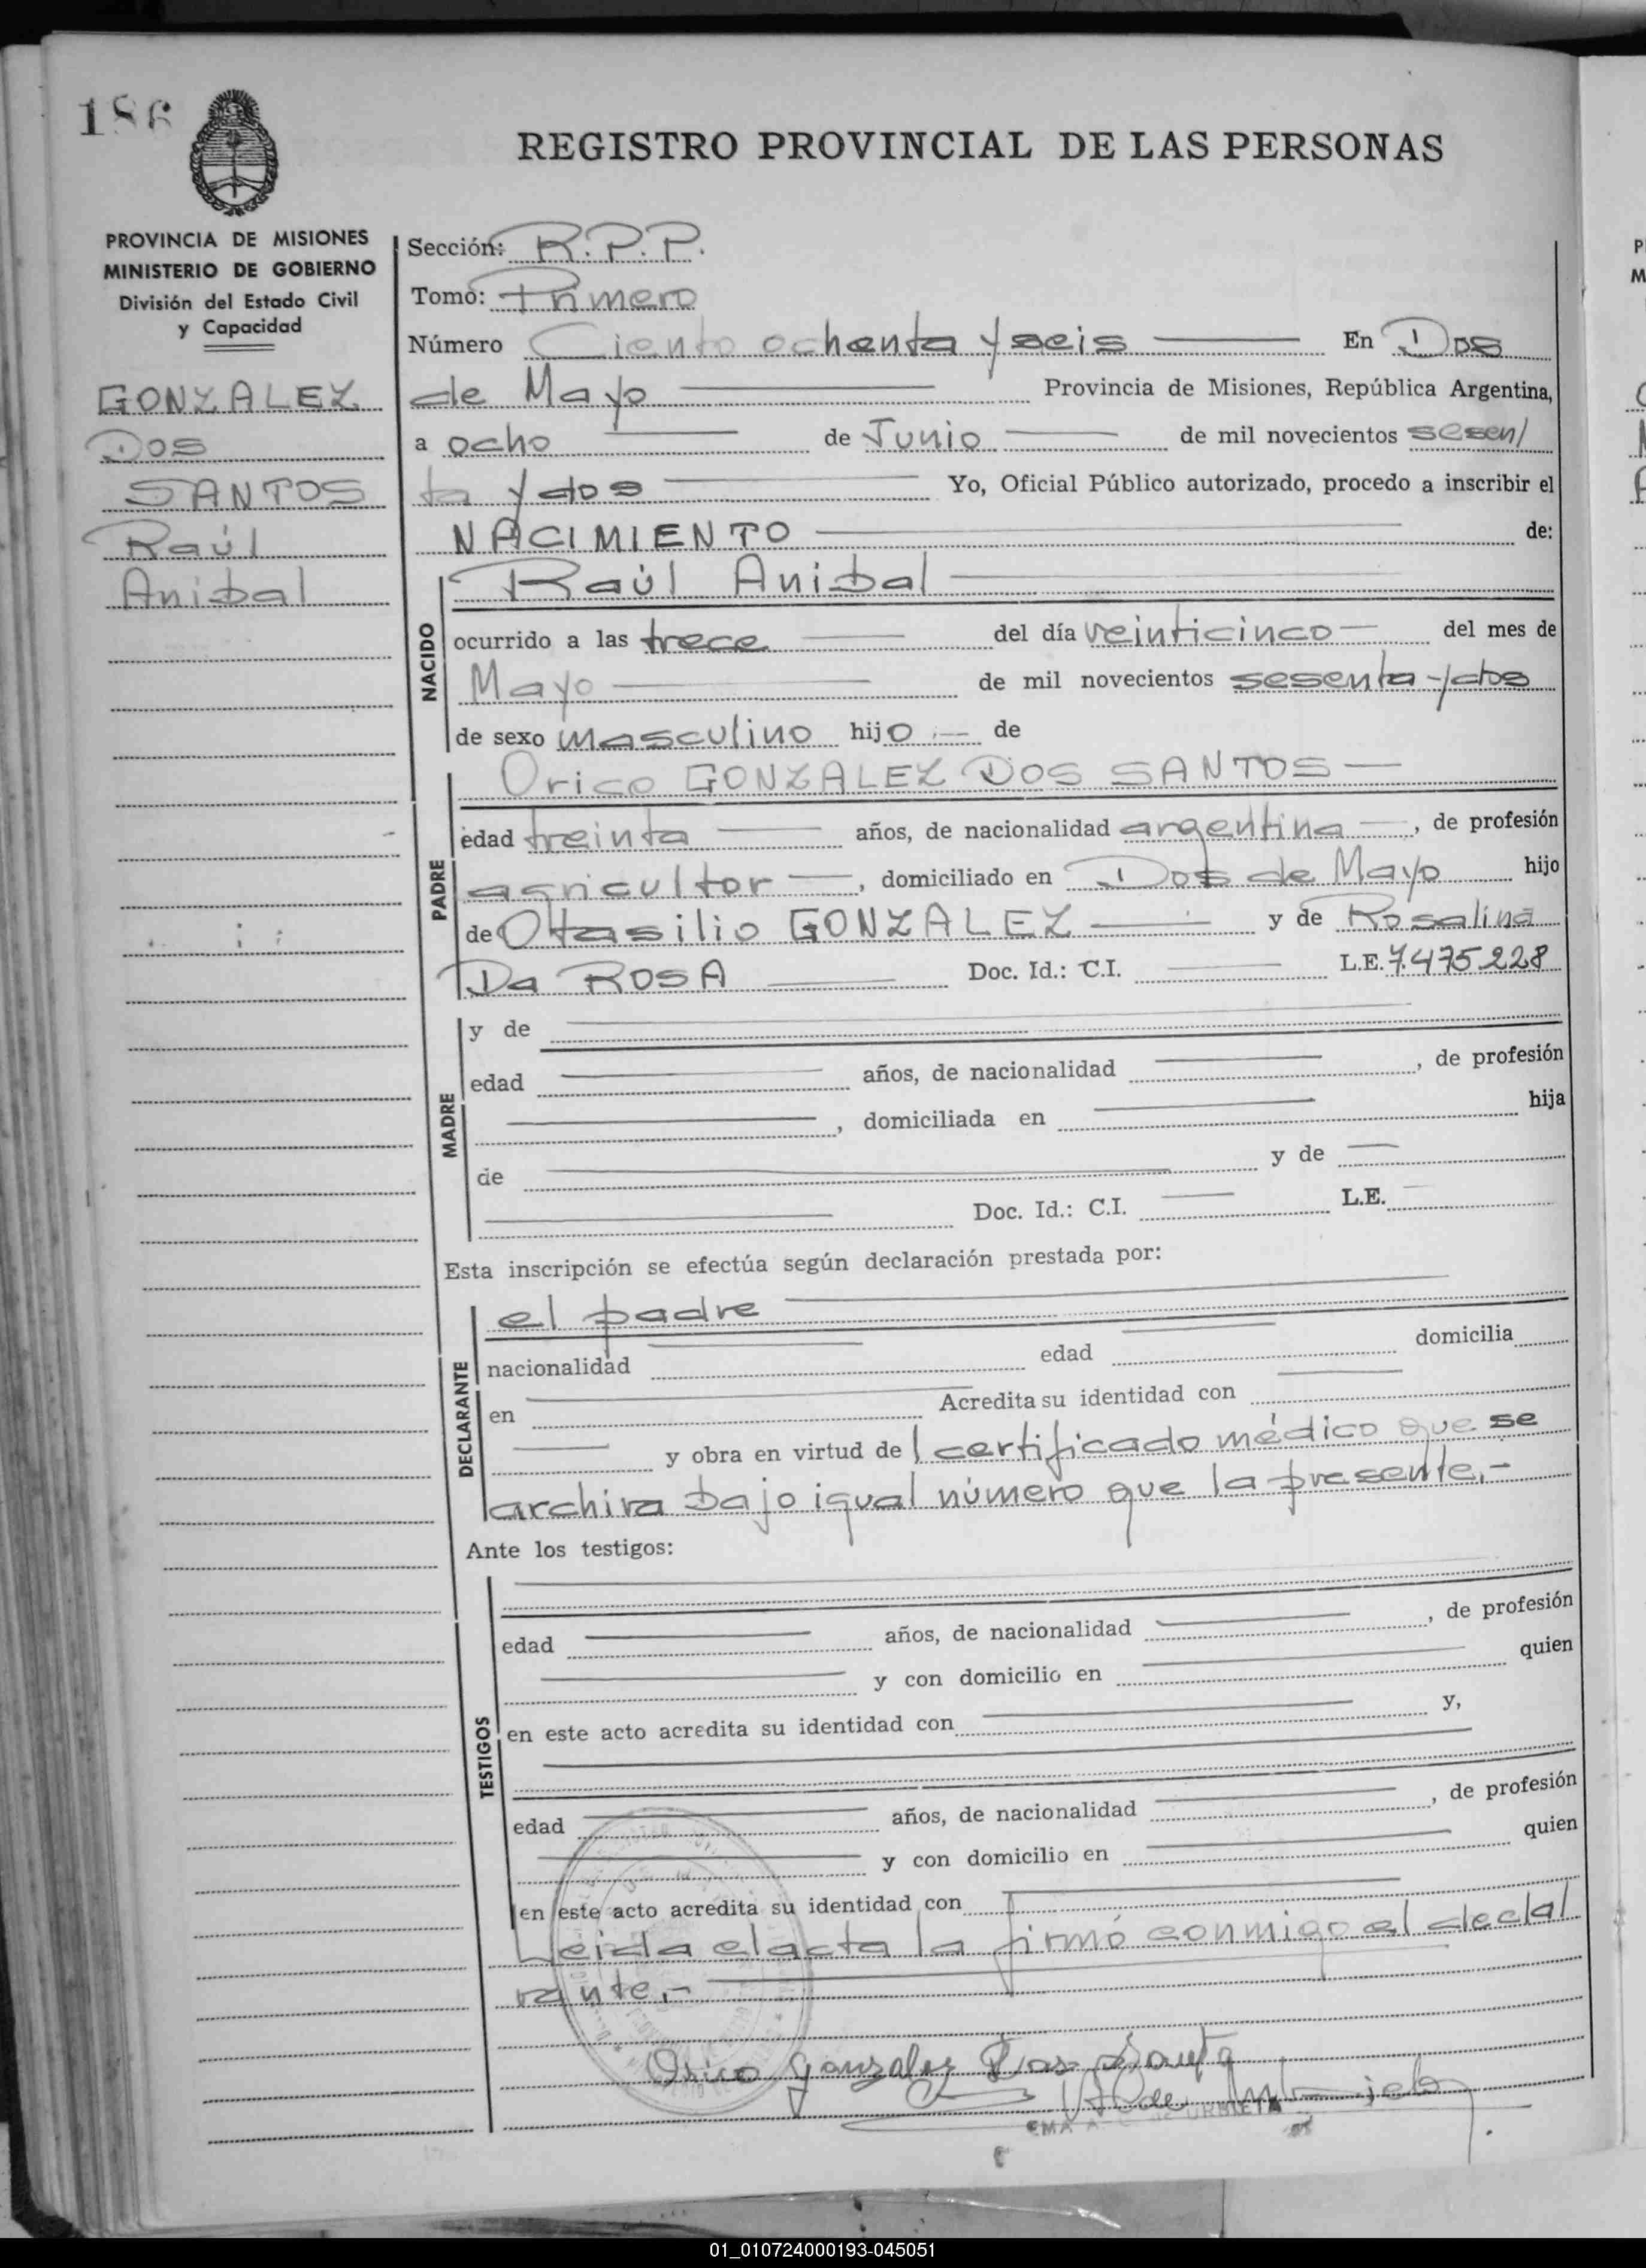 186
REGISTRO PROVINCIAL DE LAS PERSONAS
PROVINCIA DE MISIONES
MINISTERIO DE GOBIERNO
División del Estado Civil
y Capacidad
GONZALEZ
DOS
SANTOS
Raúl
Anibal
Sección: R.P.P.
Tomo: Primero
Número Ciento ochenta y seis En Dos
de Mayo Provincia de Misiones, República Argentina,
a ocho de Junio de mil novecientos sesen/
ta y dos Yo, Oficial Público autorizado, procedo a inscribir el
NACIMIENTO de:
NACIDO
Raúl Anibal
ocurrido a las trece del día veinticinco del mes de
Mayo de mil novecientos sesenta y dos
de sexo masculino hijo de
PADRE
Orico GONZALEZ DOS SANTOS
edad treinta años, de nacionalidad argentina, de profesión
agricultor, domiciliado en Dos de Mayo hijo
de Otasilio GONZALEZ y de Rosalina
Da ROSA Doc. Id.: C.I. L.E. 7.475.228
MADRE
y de
edad años, de nacionalidad , de profesión
, domiciliada en hija
de y de
Doc. Id.: C.I. L.E.
Esta inscripción se efectúa según declaración prestada por:
DECLARANTE
el padre
nacionalidad edad domicilia
en Acredita su identidad con
y obra en virtud de l certificado médico que se
archiva bajo igual número que la presente.-
Ante los testigos:
TESTIGOS
edad años, de nacionalidad , de profesión
y con domicilio en quien
en este acto acredita su identidad con y,
edad años, de nacionalidad , de profesión
y con domicilio en quien
en este acto acredita su identidad con
Leida el acta la firmó conmigo el decla/
rante.-
Orico Gonzalez Dos Santo
URBIETA
01_010724000193-045051